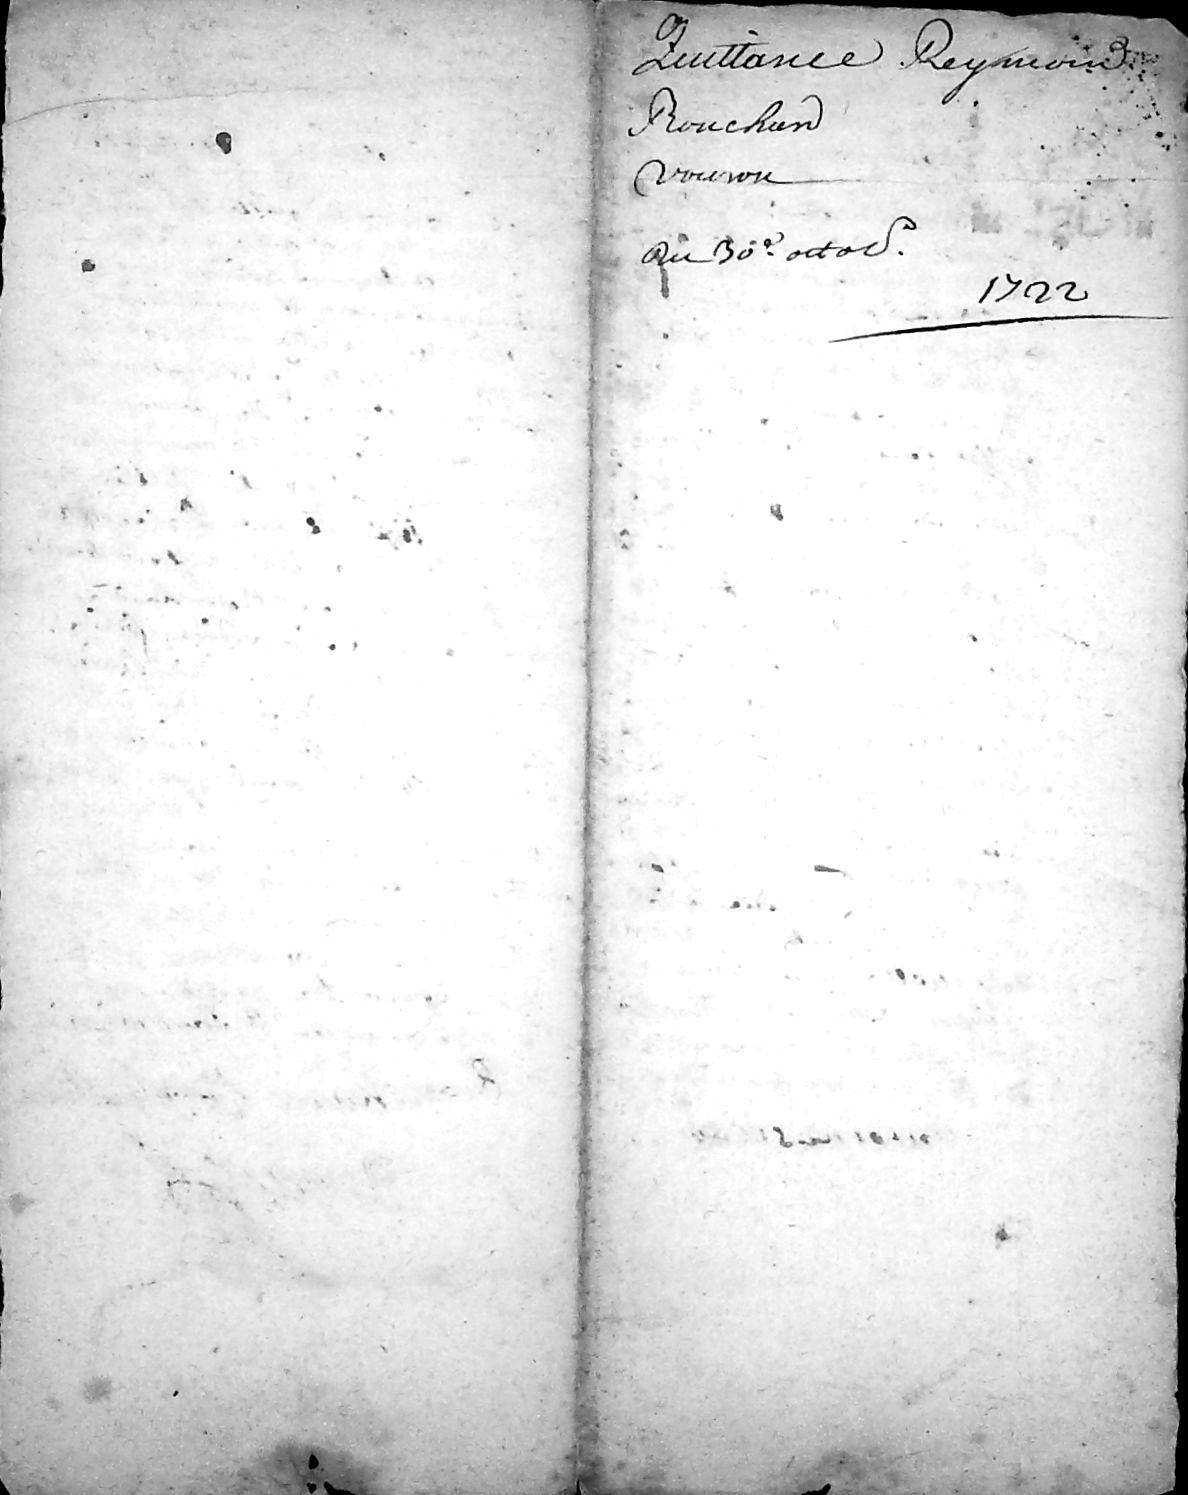 Quittance Reymond
Rouchard
Vouron
Du 30e. octob.
1722